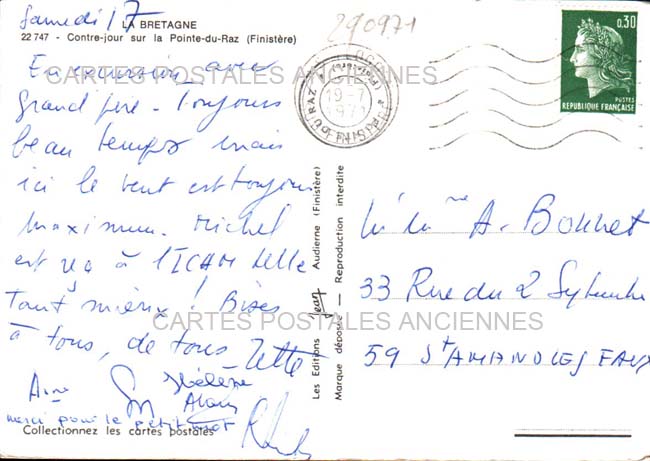 Samedi 17
LA BRETAGNE
22 747 - Contre-jour sur la Pointe-du-Raz (Finistère)
290971
En excursion avec
grand père - Toujours
beau temps mais
ici le vent est toujours
maximum. Michel
est reçu à l'ICAM Lille
Tant mieux ! Bises
à tous, de tous
Hélène
Alain
merci pour le petit mot
Collectionnez les cartes postales
CARTES POSTALES ANCIENNES
CARTES POSTALES ANCIENNES
Les Editions Jean Audierne (Finistère)
Marque déposée — Reproduction interdite
19-7
1971
FINISTERE
0,30
POSTES
REPUBLIQUE FRANÇAISE
A. Bonnet
33 Rue du 2 Septembre
59 St AMAND LES EAUX